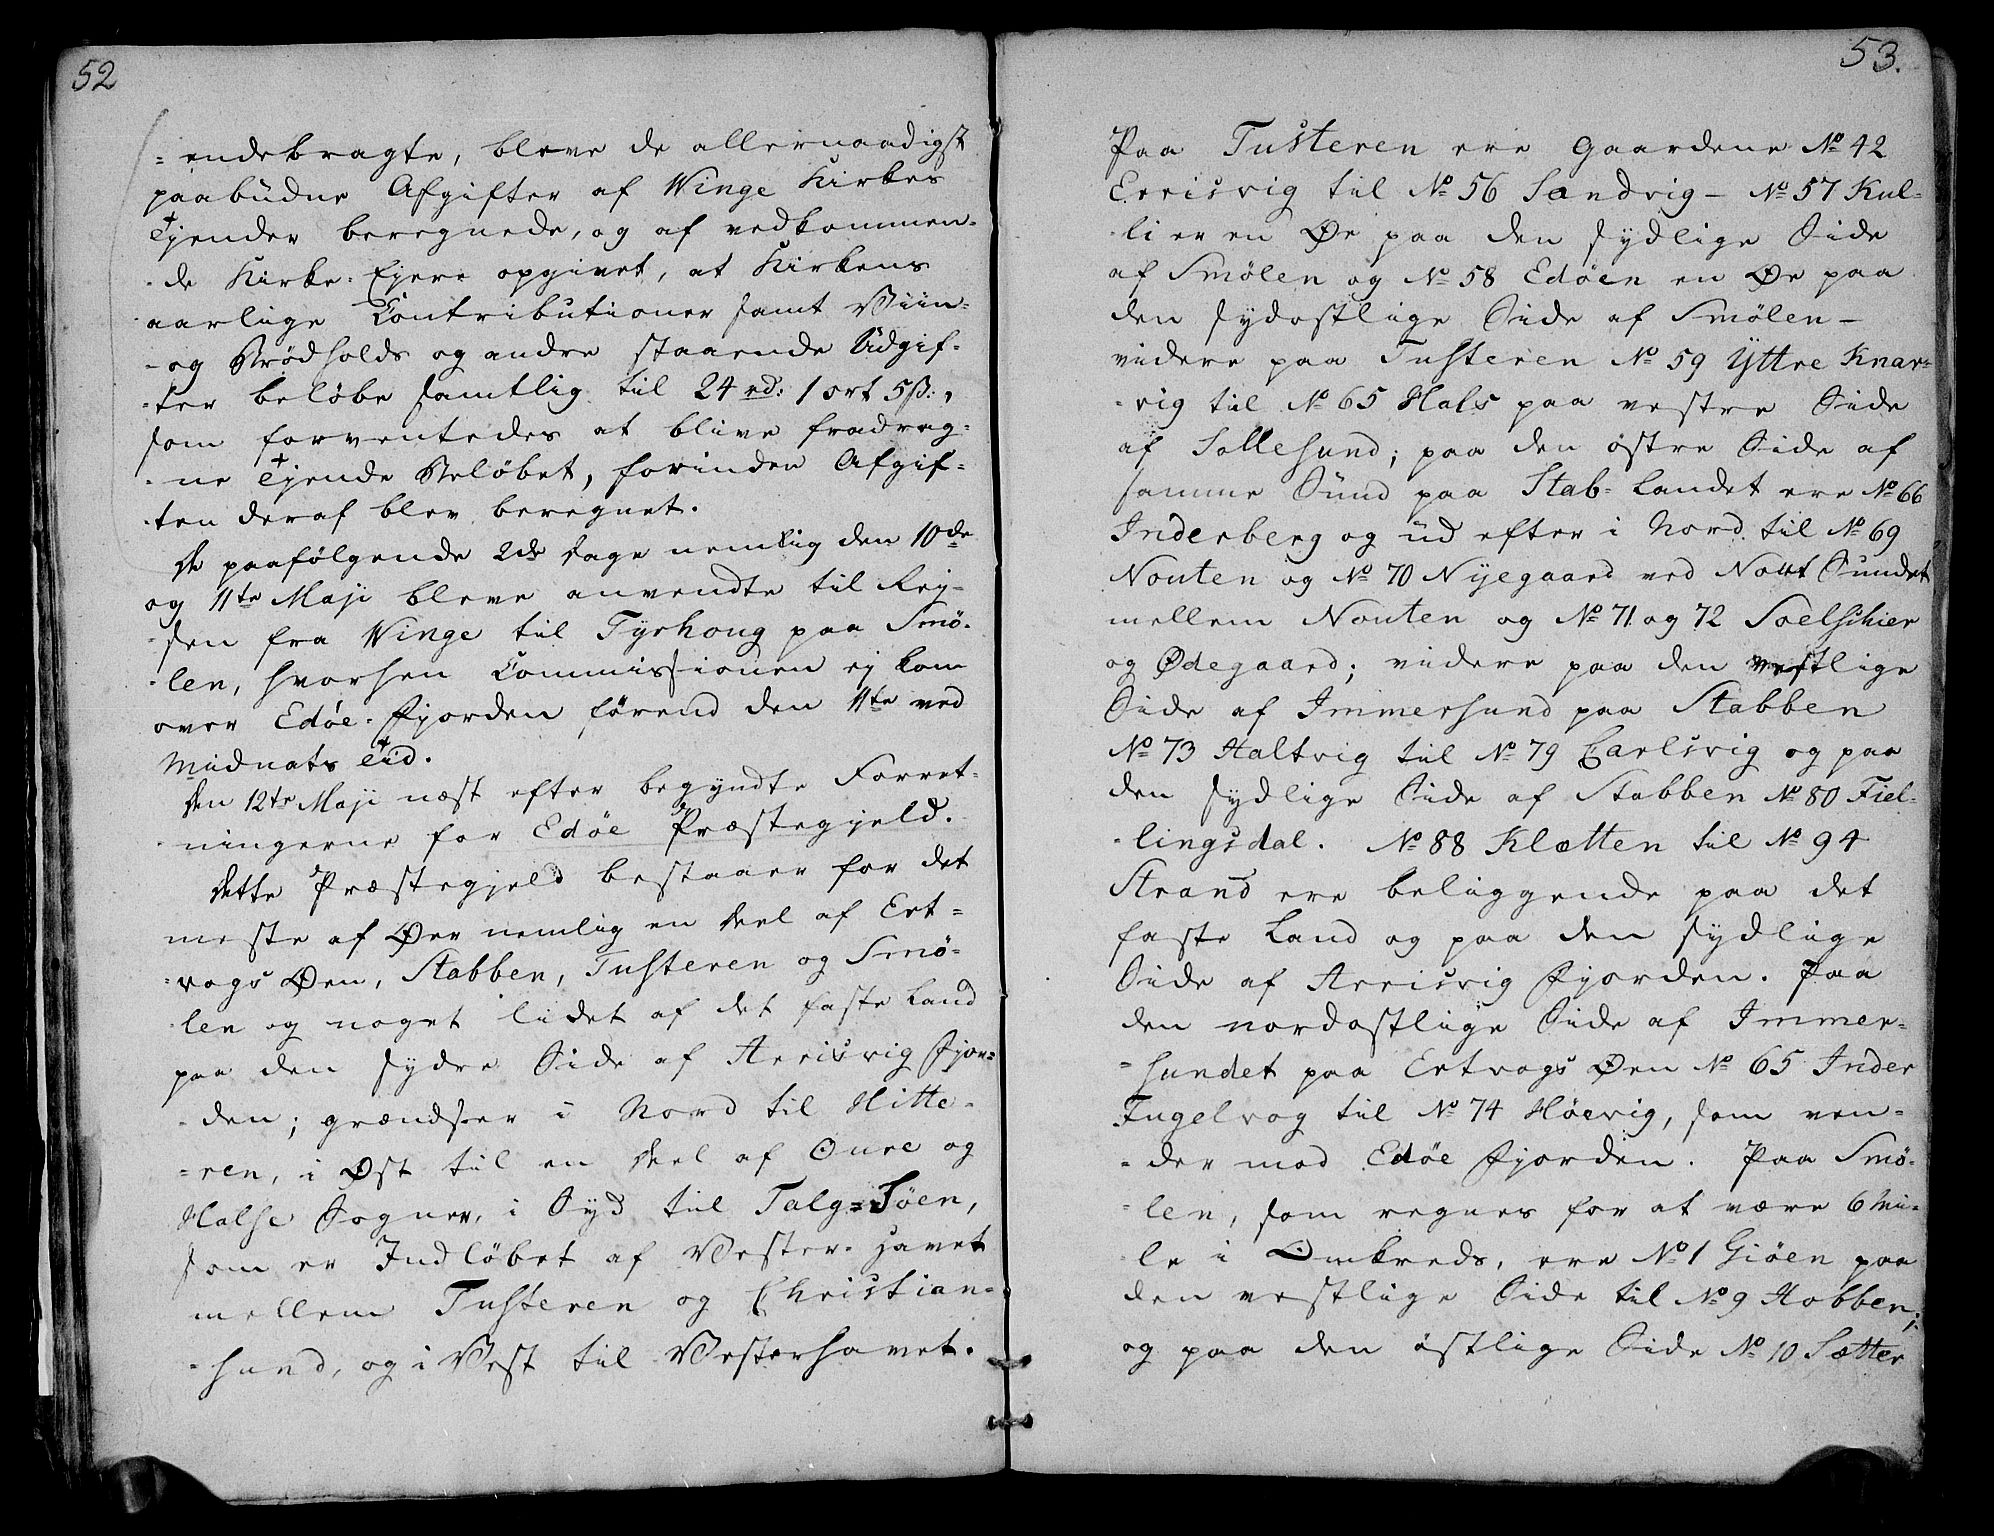 52
= endebragte, bleve de allernaadigst
paabudne Afgifter af Winge Kirkes
Tjender beregnede, og af vedkommen-
-de Kirke-Ejere opgivet, at Kirkens
aarlige Contributioner samt Viin-
-og Brødholds og andre staaende Udgif-
-ter beløbe samtlig til 24 rd: 1 ort 5ß:,
som forventedes at blive fradrag-
-ne Tjende Beløbet, forinden Afgif-
-ten deraf blev beregnet.
De paafølgende 2de Dage nemlig den 10de
og 11te Maji bleve anvendte til Rej-
-sen fra Winge til Tyrhoug paa Smø-
-len, hvorhen Commissionen ej kom
over Edøe-Fjorden førend den 11te ved
Midnats Tid.
Den 12te Maji næst efter begyndte Forret-
-ningerne for Edøe Præstegjeld.
Dette Præstegjeld bestaaer for det
meste af Øer nemlig en Deel af Ert=
-vogs Øen, Stabben, Tusteren og Smø-
-len og noget lidet af det faste Land
paa den sydre Side af Arrisvig Fjor=
-den; grændser i Nord til Hitte-
-ren, i Øst til en Deel af Oure og
Halse Sogner, i Syd til Talg=Søen,
som er Indløbet af Vester-Havet
mellem Tusteren og Christian-
-sund, og i Vest til Vesterhavet.
53.
Paa Tusteren ere Gaardene No 42
Errisvig til No 56 Sandvig - No 57 Kul-
-li er en Øe paa den sydlige Side
af Smølen og No 58 Edøen en Øe paa
den sydostlige Side af Smølen -
videre paa Tusteren No 59 Yttre Knar-
-vig til No 65 Hals paa vestre Side
af Sollesund; paa den østre Side af
samme Sund paa Stab-Landet ere No 66
Inderberg og ud efter i Nord til No 69
Nouten og No 70 Nyegaard ved Nout Sundet
mellem Nouten og No 71 og 72 Soelschier
og Ødegaard; videre paa den vestlige
Side af Immersund paa Stabben
No 73 Haltvig til No 79 Carlsvig og paa
den sydlige Side af Stabben No 80 Fiel-
-lingsdal. No 88 Kletten til No 94
Strand ere beliggende paa det
faste Land og paa den sydlige
Side af Arrisvig Fjorden. Paa
den nordostlige Side af Immer-
=sundet paa Ertvogs Øen No 65 Inder
Fugelvog til No 74 Høevig, som ven-
-der mod Edøe Fjorden. Paa Smø-
-len, som regnes for at være 6 Mi-
le i Omkreds, ere No 1 Giøen paa
den vestlige Side til No 9 Hobben;
og paa den østlige Side No 10 Sætter